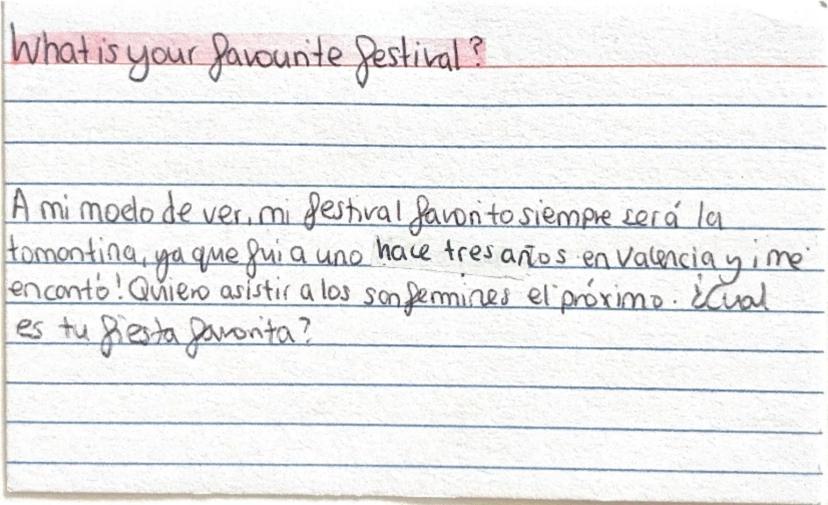 What is your favourite festival?
A mi modo de ver, mi festival favorito siempre será la
tomantina, ya que fui a uno hace tres años en valencia y ¡me
encantó! Quiero asistir a los sanfermines el próximo. ¿Cual
es tu fiesta favorita?